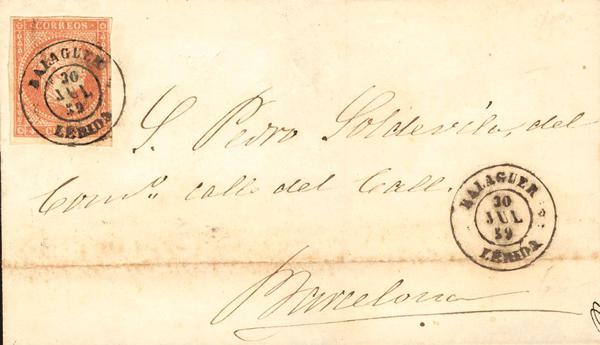 CORREOS
BALAGUER
30
JUL
59
LÉRIDA
S. Pedro Soldevila, del
Com.º calle del Call.
BALAGUER
30
JUL
59
LÉRIDA
Barcelona